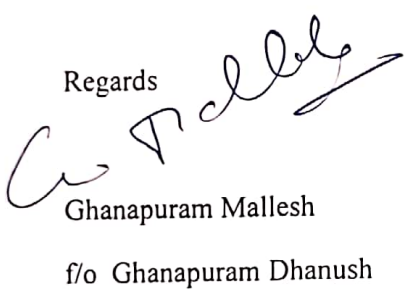 Regards
G Mallesh
Ghanapuram Mallesh
f/o Ghanapuram Dhanush